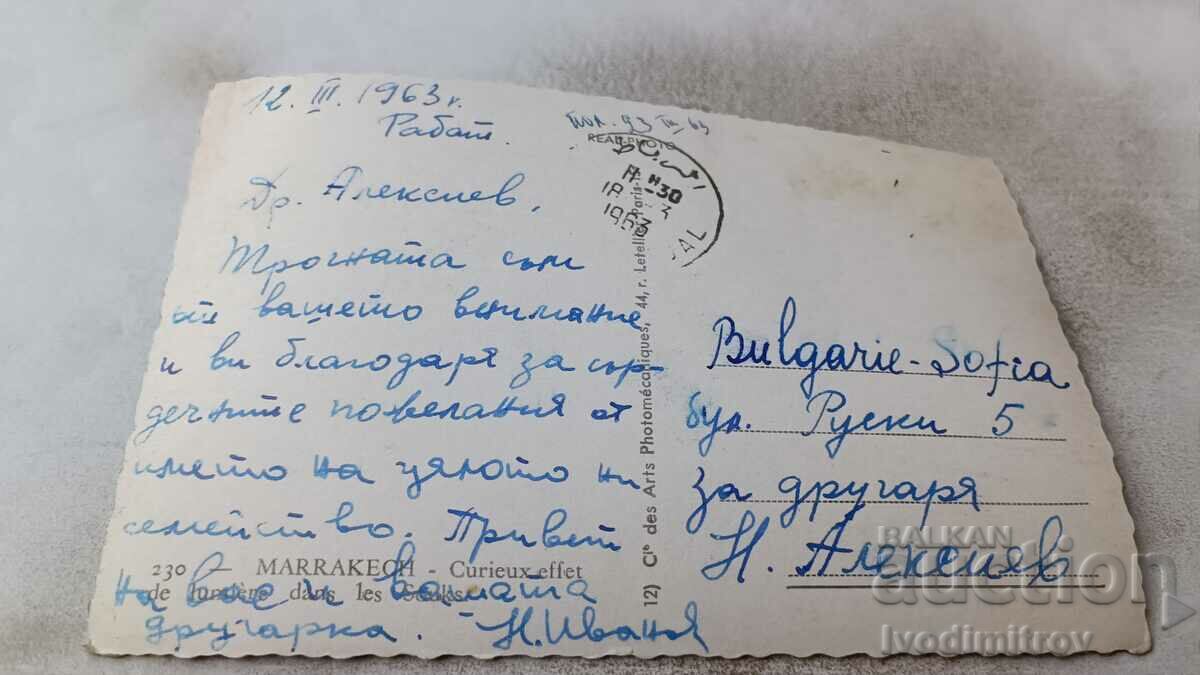 12. III. 1963 г.
Рабат.
Др. Алексиев,
Трогната съм
от вашето внимание
и ви благодаря за сър-
дечните пожелания от
името на цялото ни
семейство. Привет
на Вас и вашата
другарка. Н. Иваня
230 - MARRAKECH - Curieux effet
de lumière dans les Souks
12) Cie des Arts Photomécaniques, 44, r. Letellier, Paris-
REAL PHOTO
Пол. 23 III 63
-30
18 - 3
1963
Bulgarie-Sofia
бул. Руски 5
за другаря
Н. Алексиев
BALKAN
auction
Ivodimitrov